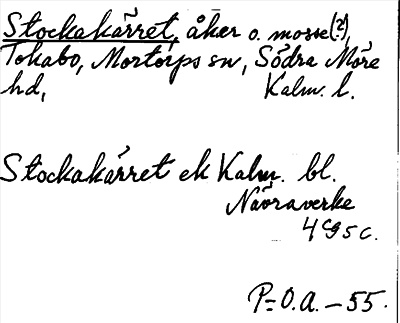 Stockakärret, åker o. mosse(?),
Tokabo, Mortorps sn, Södra Möre
hd, Kalm. l.
Stockakärret ek Kalm. bl.
Nävraverke
4 C 9 5 c.
P=O.A. - 55.